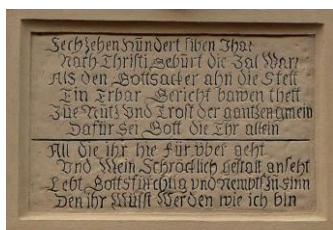 Sechzehen Hundert siben Jhar
Nach Christi Gebürt die Zal War
Als den Gottsacker ahn die Stett
Ein Erbar Gericht bawen thett
Zue Nutz Vnd Trost der gantzen gmein
Dafür Sei Gott die Ehr allein
All die ihr hie Für vber geht
Vnd Mein Schröcklich gestalt anseht
Lebt Gottsfürchtig vnd Nembts In sinn
Den ihr Müsst Werden wie ich bin